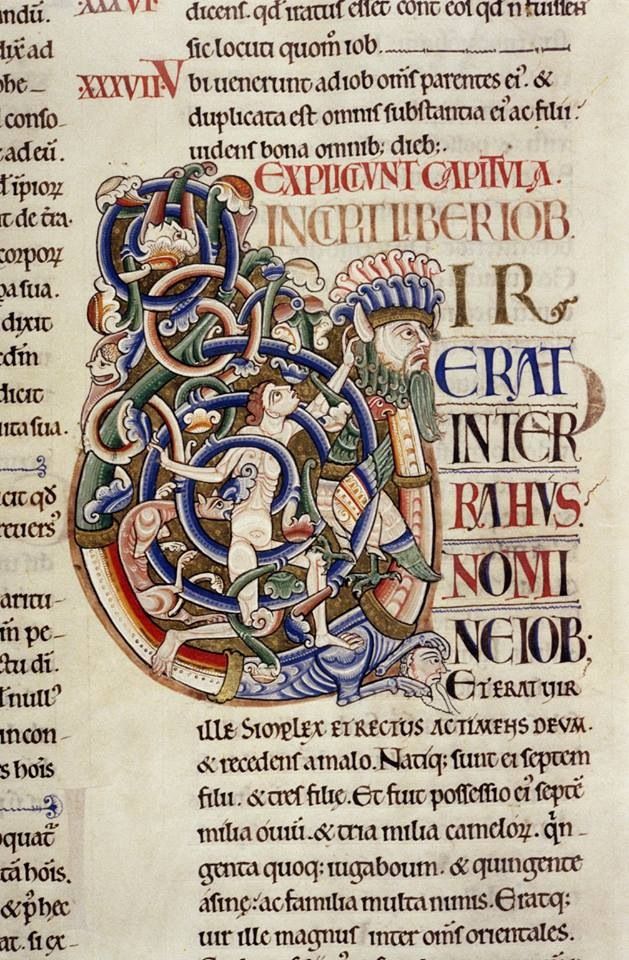 andū.
dix̄ ad
conso-
ad eū.
it de t̄ra.
corporꝝ
sua.
dixit
dicit
uita sua.
icit qd̄
in pe-
ctu dī.
null⁹
in con-
hoīs
oquat̄
tā hoīs.
& p̄hec
at. si ex-
XXXVI
dicens. qd̄ iratus esset cont̄ eos qd̄ n̄ fuissent
sic locuti quom̄ iob.
XXXVII. Vbi uenerunt ad iob om̄s parentes ei⁹. &
duplicata est omnis substantia ei⁹ ac filii
uidens bona omnib; dieb;.
EXPLICIUNT CAPITULA.
INCIPIT LIBER IOB.
VIR
ERAT
IN TER
RA HUS.
NOMI
NE IOB;
ET ERAT UIR
ILLE SIMPLEX ET RECTUS AC TIMENS DEUM.
& recedens a malo. Natiq; sunt ei septem
filii. & tres filie. Et fuit possessio ei⁹ septē
milia ouiū. & tria milia camelorꝝ. q̄n-
genta quoq; iuga boum. & quingente
asine: ac familia multa nimis. Eratq;
uir ille magnus inter om̄s orientales.